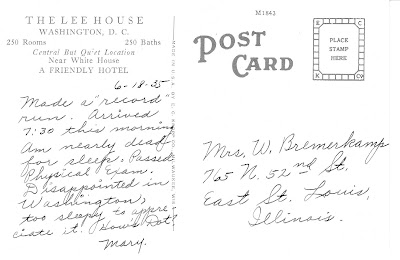 THE LEE HOUSE
WASHINGTON, D. C.
250 Rooms 250 Baths
Central But Quiet Location
Near White House
A FRIENDLY HOTEL
6-18-35
Made a "record"
run. Arrived
7:30 this morning
Am nearly dead
for sleep. Passed
Physical Exam.
Disappointed in
Washington,
too sleepy to appre-
ciate it. How's Dot?
Mary.
M1843
POST CARD
PLACE
STAMP
HERE
E K C
K Co
Mrs. W. Bremerkamp
765 N. 52nd St.
East St. Louis,
Illinois.